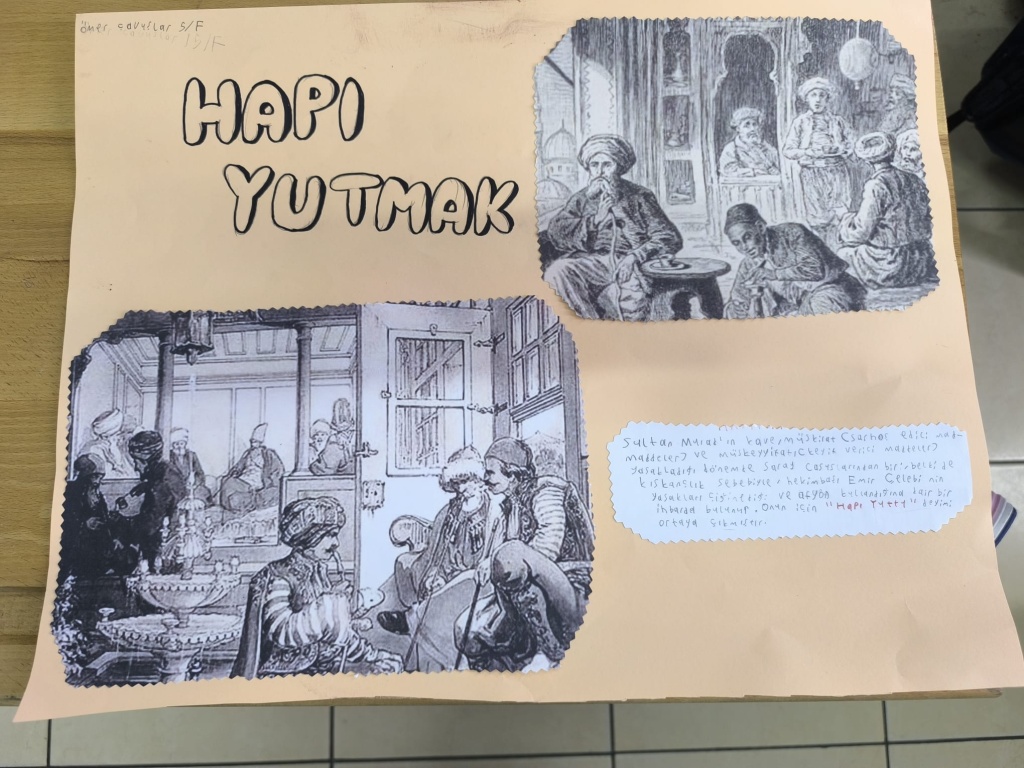 ömer çavuşlar 5/F
HAPI
YUTMAK
Sultan Murad'ın kave, müskirat (sarhoş edici mad-
maddeler) ve mükeyyifatı, (keyif verici maddeler)
yasakladığı dönemde Saray Casuslarından biri, belki de
kıskançlık sebebiyle, hekimbaşı Emir Çelebi'nin
yasakları çiğnediği ve afyon kullandığına dair bir
ihbarda bulunup. Onun için "Hapı Yuttu" deyimi
ortaya çıkmıştır.